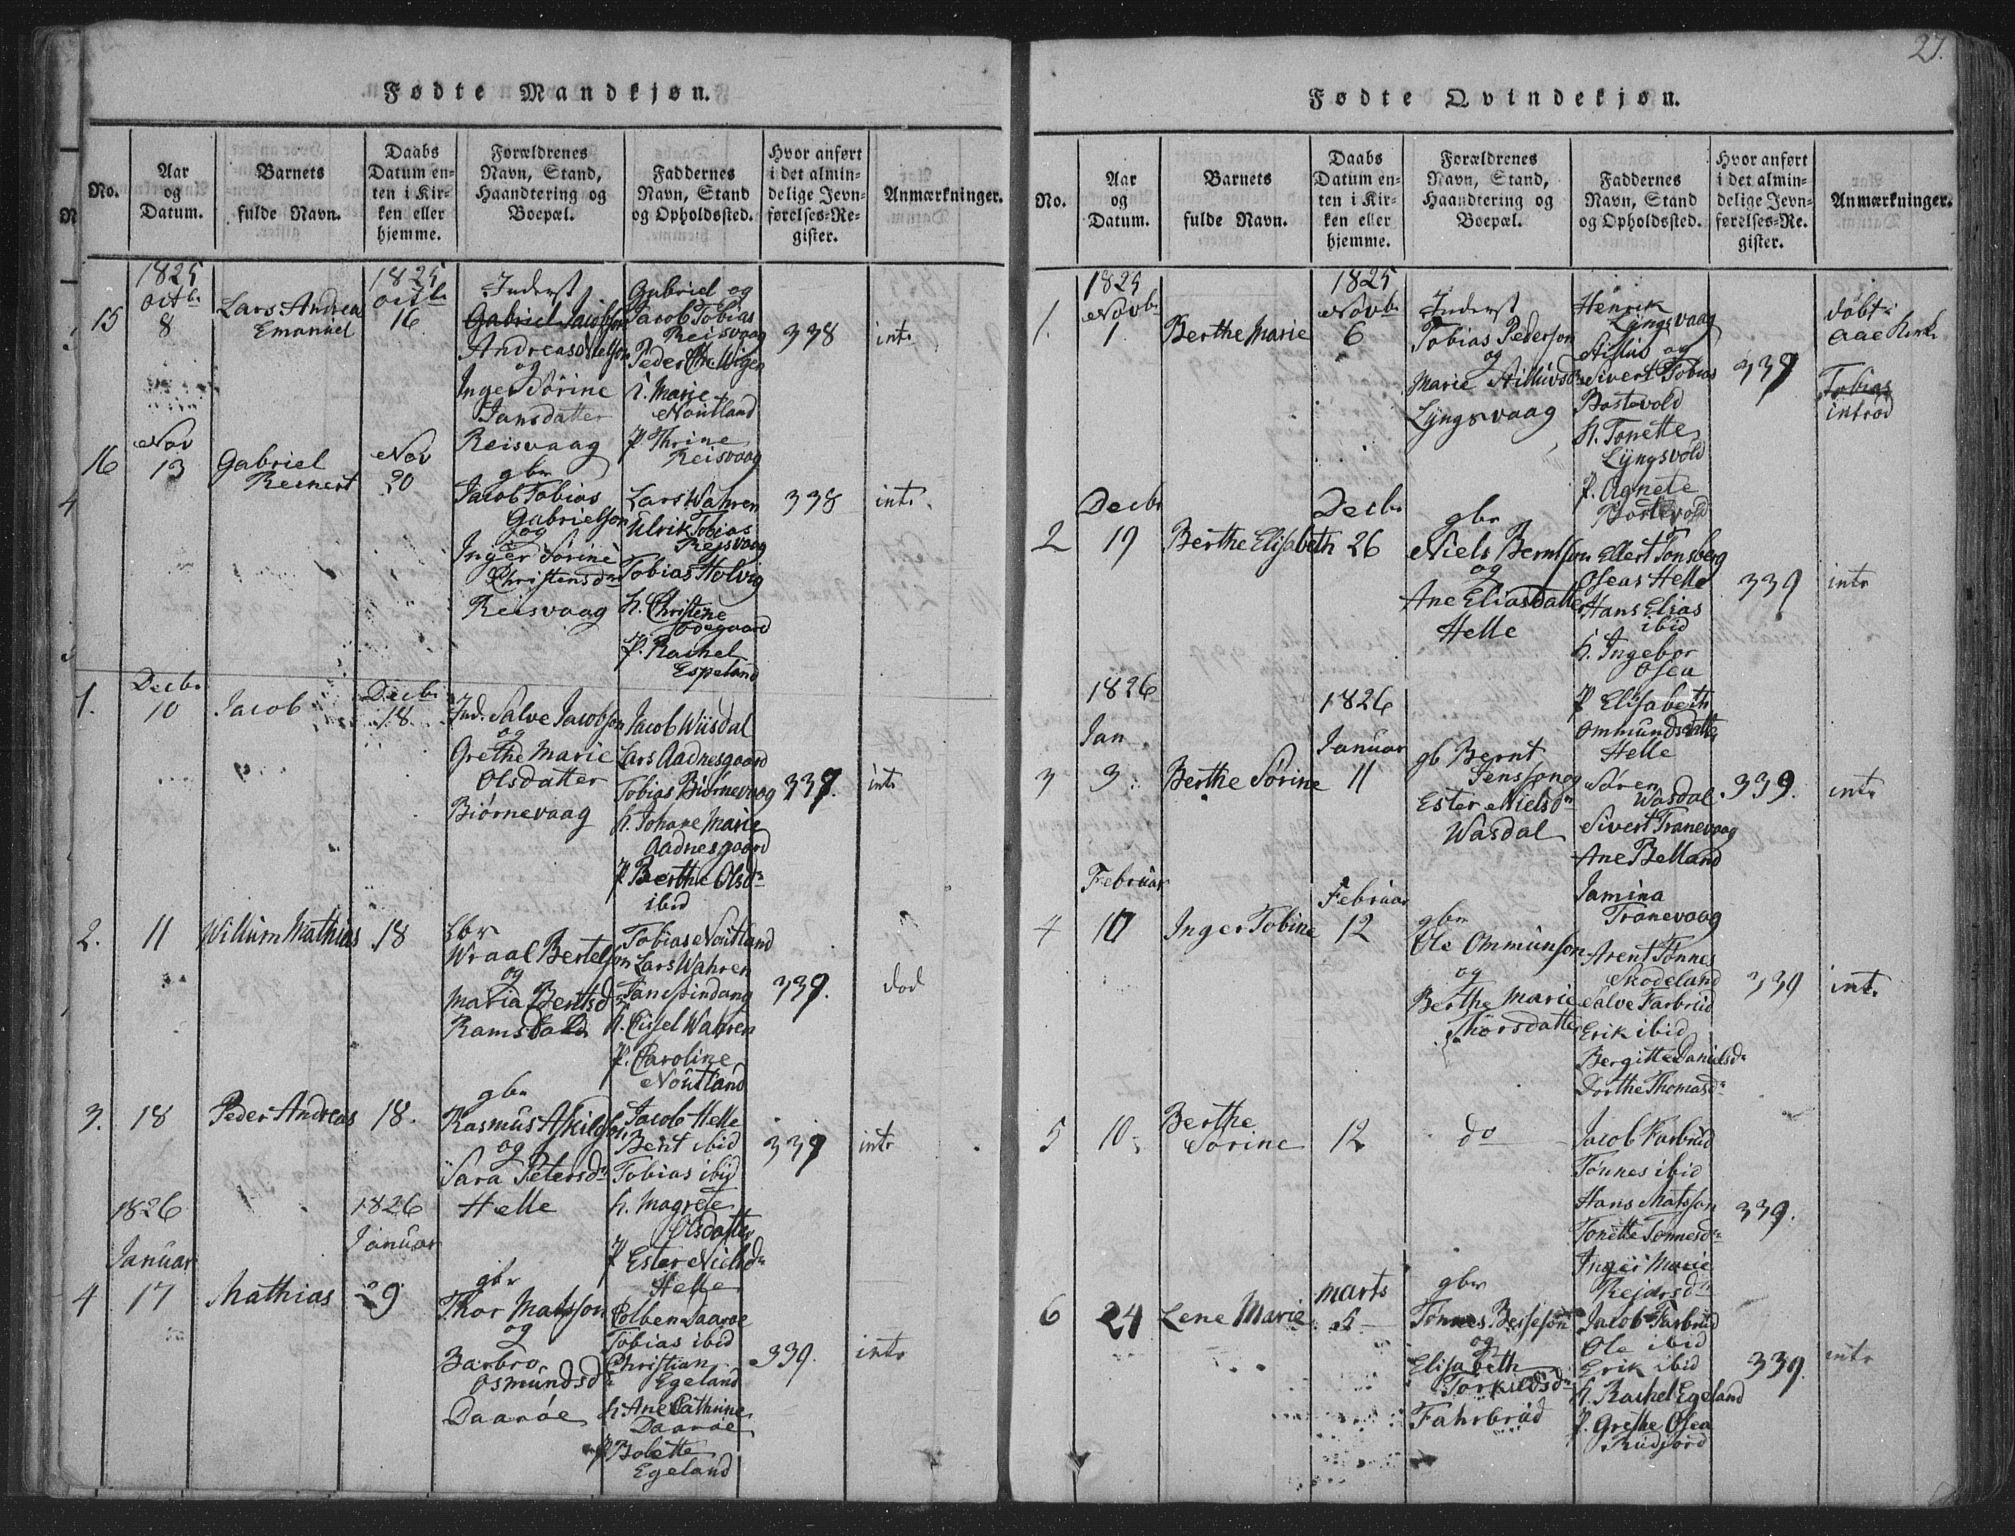 27.
Fødte Mandkjøn.
No.
Aar
og
Datum.
Barnets
fulde Navn.
Daabs
Datum en-
ten i Kir-
ken eller
hjemme.
Forældrenes
Navn, Stand,
Haandtering og
Boepæl.
Faddernes
Navn, Stand
og Opholdssted.
Hvor anført
i det almin-
delige Jevn-
førelses-Re-
gister.
Anmærkninger.
15
1825
Octbr
8
Lars Andrea
Emanuel
1825
Octbr
16
Inderst
Gabriel Jacobson
Andreas Nielson
og
Inger Sørine
Jansdatter
Reisvaag
Gabriel og
Jacob Tobias
Reisvaag
Peder Chr Wigen
h. Marie
Noutland
P. Thrine
Reisvaag
338
intr
16
Nov
13
Gabriel
Reinert
Nov
20
gbr
Jacob Tobias
Gabrielson
og
Inger Sørine
Christensdr
Reisvaag
Lars Wahren
Ulrik Tobias
Reisvaag
Tobias Holvig
h. Christine
Ødegaard
P. Rachel
Espeland
338
intr.
1.
Decbr
10
Jacob
Decbr
18.
Ind. Salve Jacobson
og
Grethe Marie
Olsdatter
Biørnevaag
Jacob Wiisdal
Lars Aadnesgaard
Tobias Biørnevaag
h. Johane Marie
Aadnesgaard
P Berthe Olsdr
ibid
339.
intr
2.
11
Willum Mathias
18
gbr
Wraal Bertelson
og
Maria Bentsdr
Ramsland
Tobias Noutland
Lars Wahren
Jan Spindang
h. Cissel Wahren
P. Caroline
Noutland
339.
dod
3.
18
Peder Andreas
18.
gbr
Rasmus Askilds.
og
Sara Petersdr
Helle
Jacob Helle
Bent ibid
Tobias ibid
h. Magrete
Olsdatter
P Ester Nielsdr
Helle
339
intr
4
1826
Januar
17
Mathias
1826
Januar
29
gbr
Thor Matsson
og
Barbro
Osmundsdr
Daarøe
Colben Daarøe
Tobias ibid
Christian
Egeland
h Ane Cathrine
Daarøe
P Bolette
Egeland
339.
intr
Fødte Qvindekjøn.
No.
Aar
og
Datum.
Barnets
fulde Navn.
Daabs
Datum en-
ten i Kir-
ken eller
hjemme.
Forældrenes
Navn, Stand,
Haandtering og
Boepæl.
Faddernes
Navn, Stand
og Opholdssted.
Hvor anført
i det almin-
delige Jevn-
førelses-Re-
gister.
Anmærkninger.
1.
1825
Novbr
1
Berthe Marie
1825
Novbr
6
Inderst
Tobias Pederson
og
Marie Stillufsdr
Lyngsvaag
Henrik
Lyngsvaag
Stilluf og
Sivert Tobias
Bostevold
h. Tonette
Lyngsvold
P. Agnete
Bostevold
339
døbt i
Aae Kirk.
Tobias
introd
2
Decbr
19
Berthe Elisabeth
Decbr
26
gbr
Niels Berntson
og
Ane Eliasdatter
Helle
Ellert Tonsberg
Oseas Helle
Hans Elias
ibid
h. Ingebor
Osea
P Elisabeth
Ommundsdatter
Helle
339
intr
3
1826
Jan
3.
Berthe Sørine
1826
Januar
11
gb Bernt
Jensson og
Ester Nielsdr
Wasdal
Søren
Wasdal.
Sivert Tranevaag
Ane Belland
Jamina
Tranevaag
339.
intr
4
Februar
10
Inger Tobine
Februar
12
gbr
Ole Ommunson
og
Berthe Marie
Thorsdatter
Arent Tønnes
Skodeland
Salve Farbrud
Erik ibid
Bergitte Danielsdr
Dorthe Thomasdr
339
intr
5
10.
Berthe
Sorine
12
do
Jacob Farbrud
Tønnes ibid
Hans Matsson
Tonette Tønnesdr
Inger Marie
Rejersdr
339.
6
24
Lene Marie
Marts
5
gbr
Tønnes Besseson
og
Elisabeth
Torkildsdr
Fahrbrud
Jacob Farbrud
Ole ibid
Erik ibid
h. Rachel Egeland
P. Grethe Osea
Rudjord
339.
intr